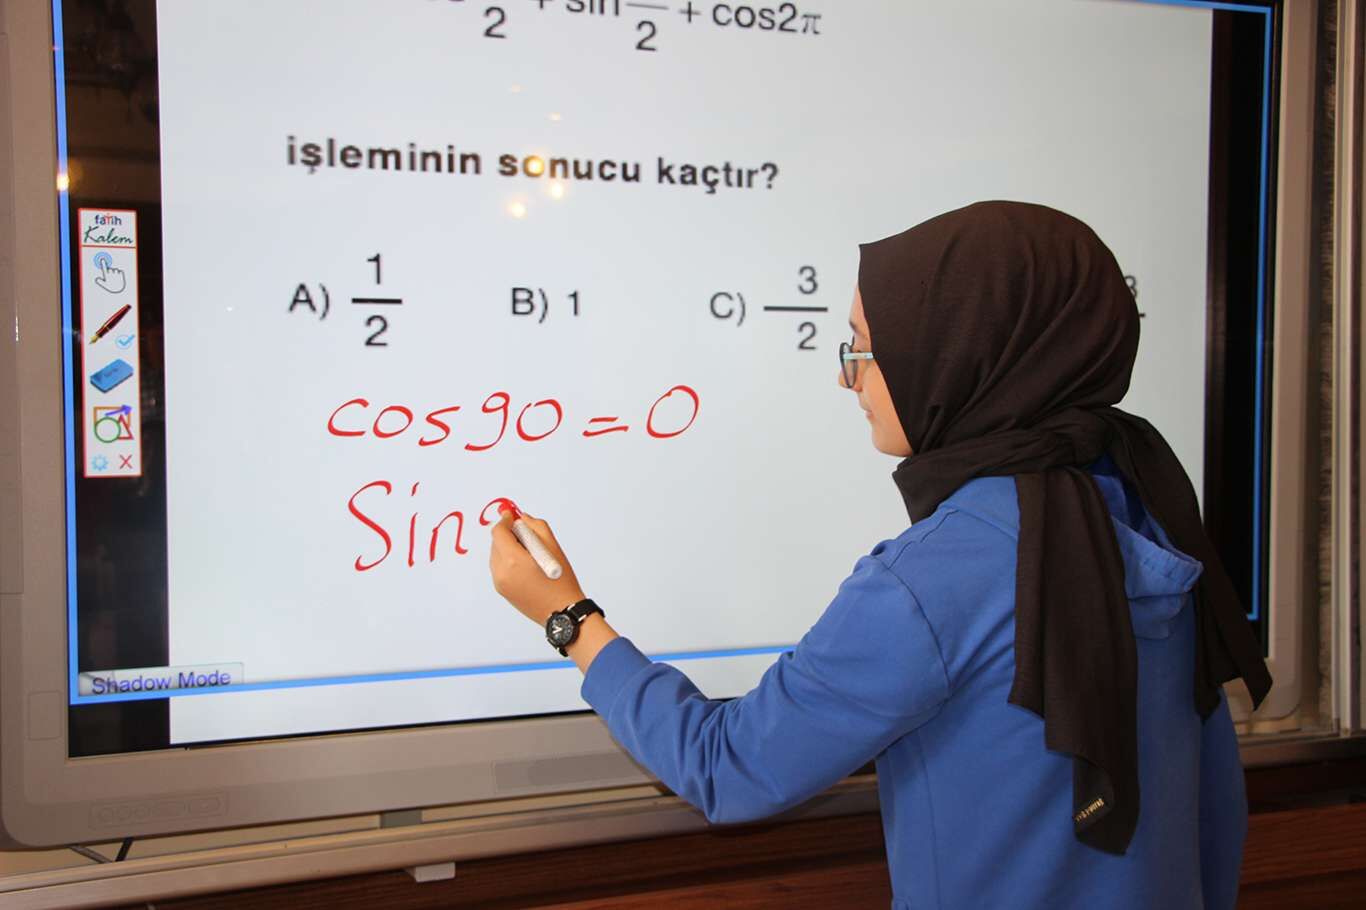 2 + sin 2 + cos2π
işleminin sonucu kaçtır?
A) 1/2 B) 1 C) 3/2
cos90=0
Sin
fatih
Kalem
Shadow Mode